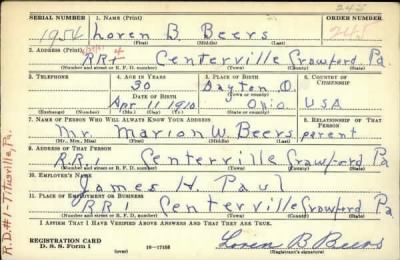 245
SERIAL NUMBER 1. NAME (Print) ORDER NUMBER
1954 Loren B. Beers 245
(First) (Middle) (Last)
2. ADDRESS (Print)
RR1 Centerville Crawford Pa.
(Number and street or R. F. D. number) (Town) (County) (State)
3. TELEPHONE 4. AGE IN YEARS 5. PLACE OF BIRTH 6. COUNTRY OF CITIZENSHIP
30 Dayton O.
DATE OF BIRTH (Town or county)
Apr 11 1910 Ohio USA
(Exchange) (No.) (Mo.) (Day) (Yr.) (State or country)
7. NAME OF PERSON WHO WILL ALWAYS KNOW YOUR ADDRESS 8. RELATIONSHIP OF THAT PERSON
Mr. Marion W. Beers parent
(Mr., Mrs., Miss) (First) (Middle) (Last)
9. ADDRESS OF THAT PERSON
R.R.1 Centerville Crawford Pa
(Number and street or R. F. D. number) (Town) (County) (State)
10. EMPLOYER'S NAME
James H. Paul
11. PLACE OF EMPLOYMENT OR BUSINESS
RR1 Centerville Crawford Pa
(Number and street or R. F. D. number) (Town) (County) (State)
I AFFIRM THAT I HAVE VERIFIED ABOVE ANSWERS AND THAT THEY ARE TRUE.
REGISTRATION CARD
D. S. S. Form 1 (over) 16-17105 Loren B Beers
(Registrant's signature)
R.D.#1-Titusville, Pa.